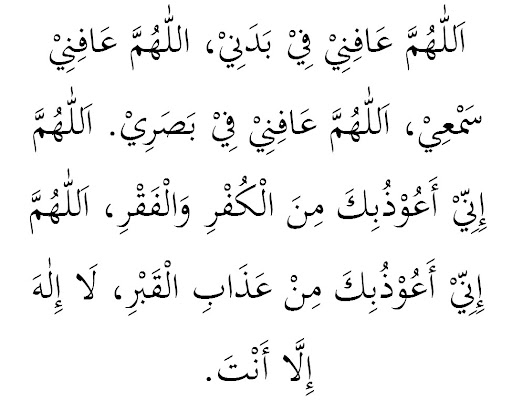 اَللّٰهُمَّ عَافِنِيْ فِيْ بَدَنِيْ، اللّٰهُمَّ عَافِنِيْ
سَمْعِيْ، اَللّٰهُمَّ عَافِنِيْ فِيْ بَصَرِيْ. اَللّٰهُمَّ
إِنِيّْ أَعُوْذُبِكَ مِنَ الْكُفْرِ وَالْفَقْرِ، اَللّٰهُمَّ
إِنِيّْ أَعُوْذُبِكَ مِنْ عَذَابِ الْقَبْرِ، لَا إِلٰهَ
إِلَّا أَنْتَ.